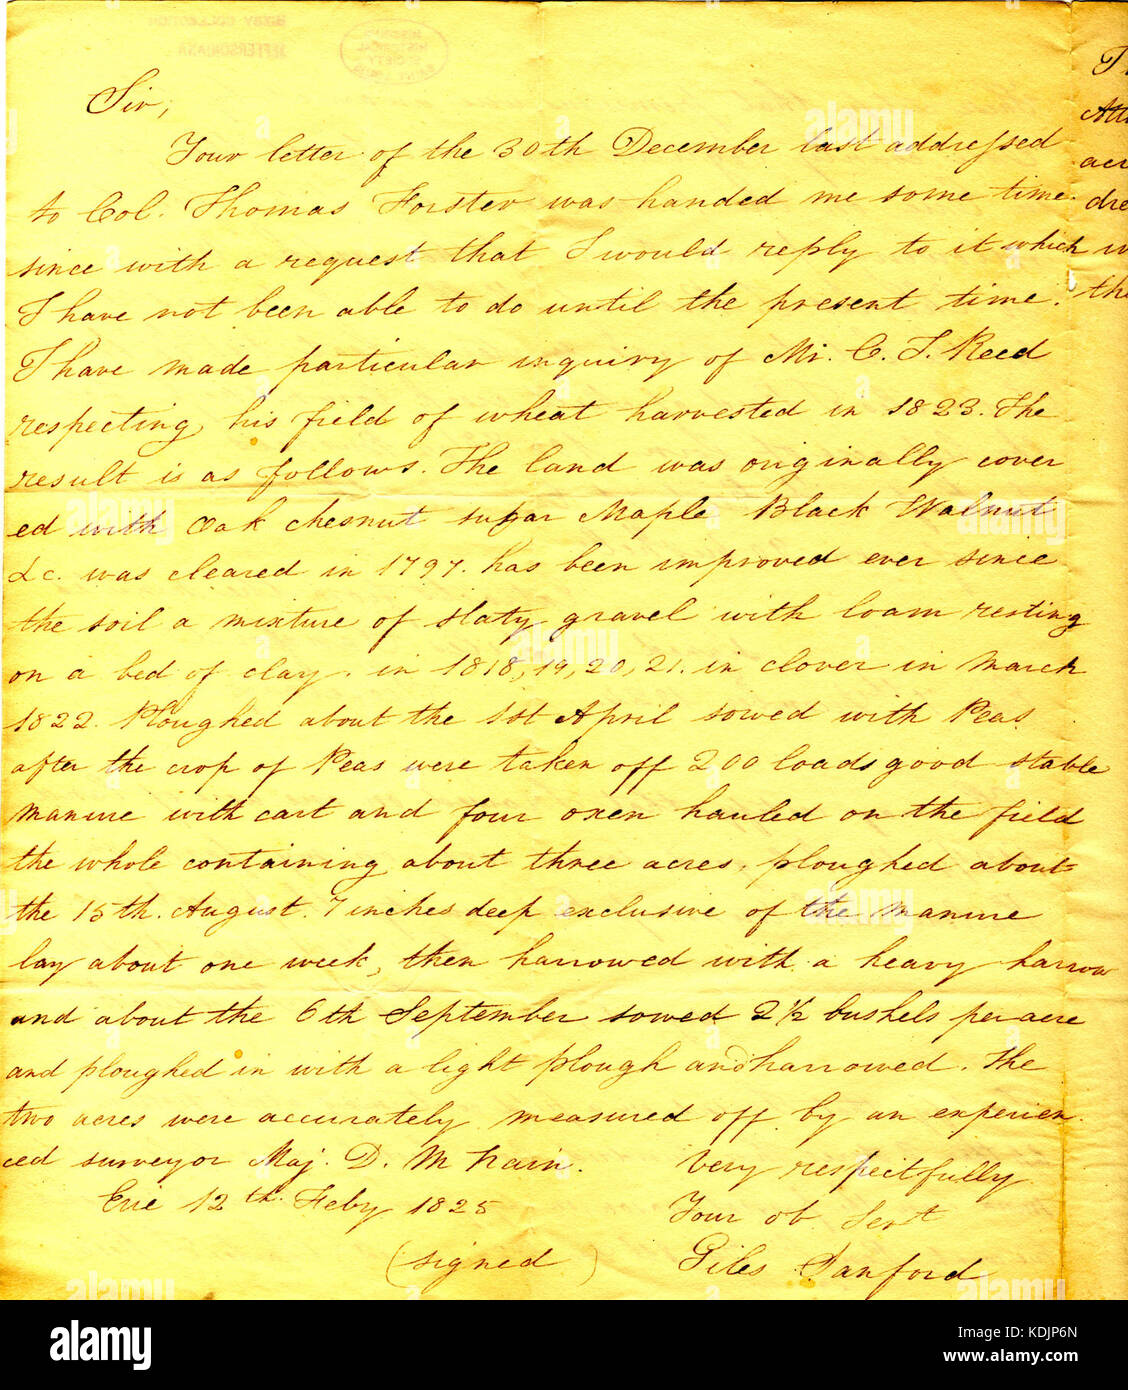 BIXBY COLLECTION
JEFFERSONIANA
MISSOURI
HISTORICAL
SOCIETY
SAINT LOUIS
Sir,
Your letter of the 30th December last addressed
to Col. Thomas Forster was handed me some time
since with a request that I would reply to it which
I have not been able to do until the present time.
I have made particular inquiry of Mr. C. S. Reed
respecting his field of wheat harvested in 1823. The
result is as follows. The land was originally cover
ed with Oak chesnut sugar Maple Black Walnut
&c. was cleared in 1797. has been improved ever since
the soil a mixture of slaty gravel with loam resting
on a bed of clay. in 1818, 19, 20, 21. in clover in March
1822. Ploughed about the 1st April sowed with Peas
after the crop of Peas were taken off 200 loads good stable
manure with cart and four oxen hauled on the field
the whole containing about three acres, ploughed about
the 15th. August. 7 inches deep exclusive of the manure
lay about one week, then harrowed with a heavy harrow
and about the 6th September sowed 2 1/2 bushels per acre
and ploughed in with a light plough and harrowed. The
two acres were accurately measured off by an experien
ced surveyor Maj. D. M Nair.
Very respectfully
Erie 12th Feby 1825
Your ob Servt
(signed)
Giles Sanford
alamy
Image ID: KDJP6N
www.alamy.com